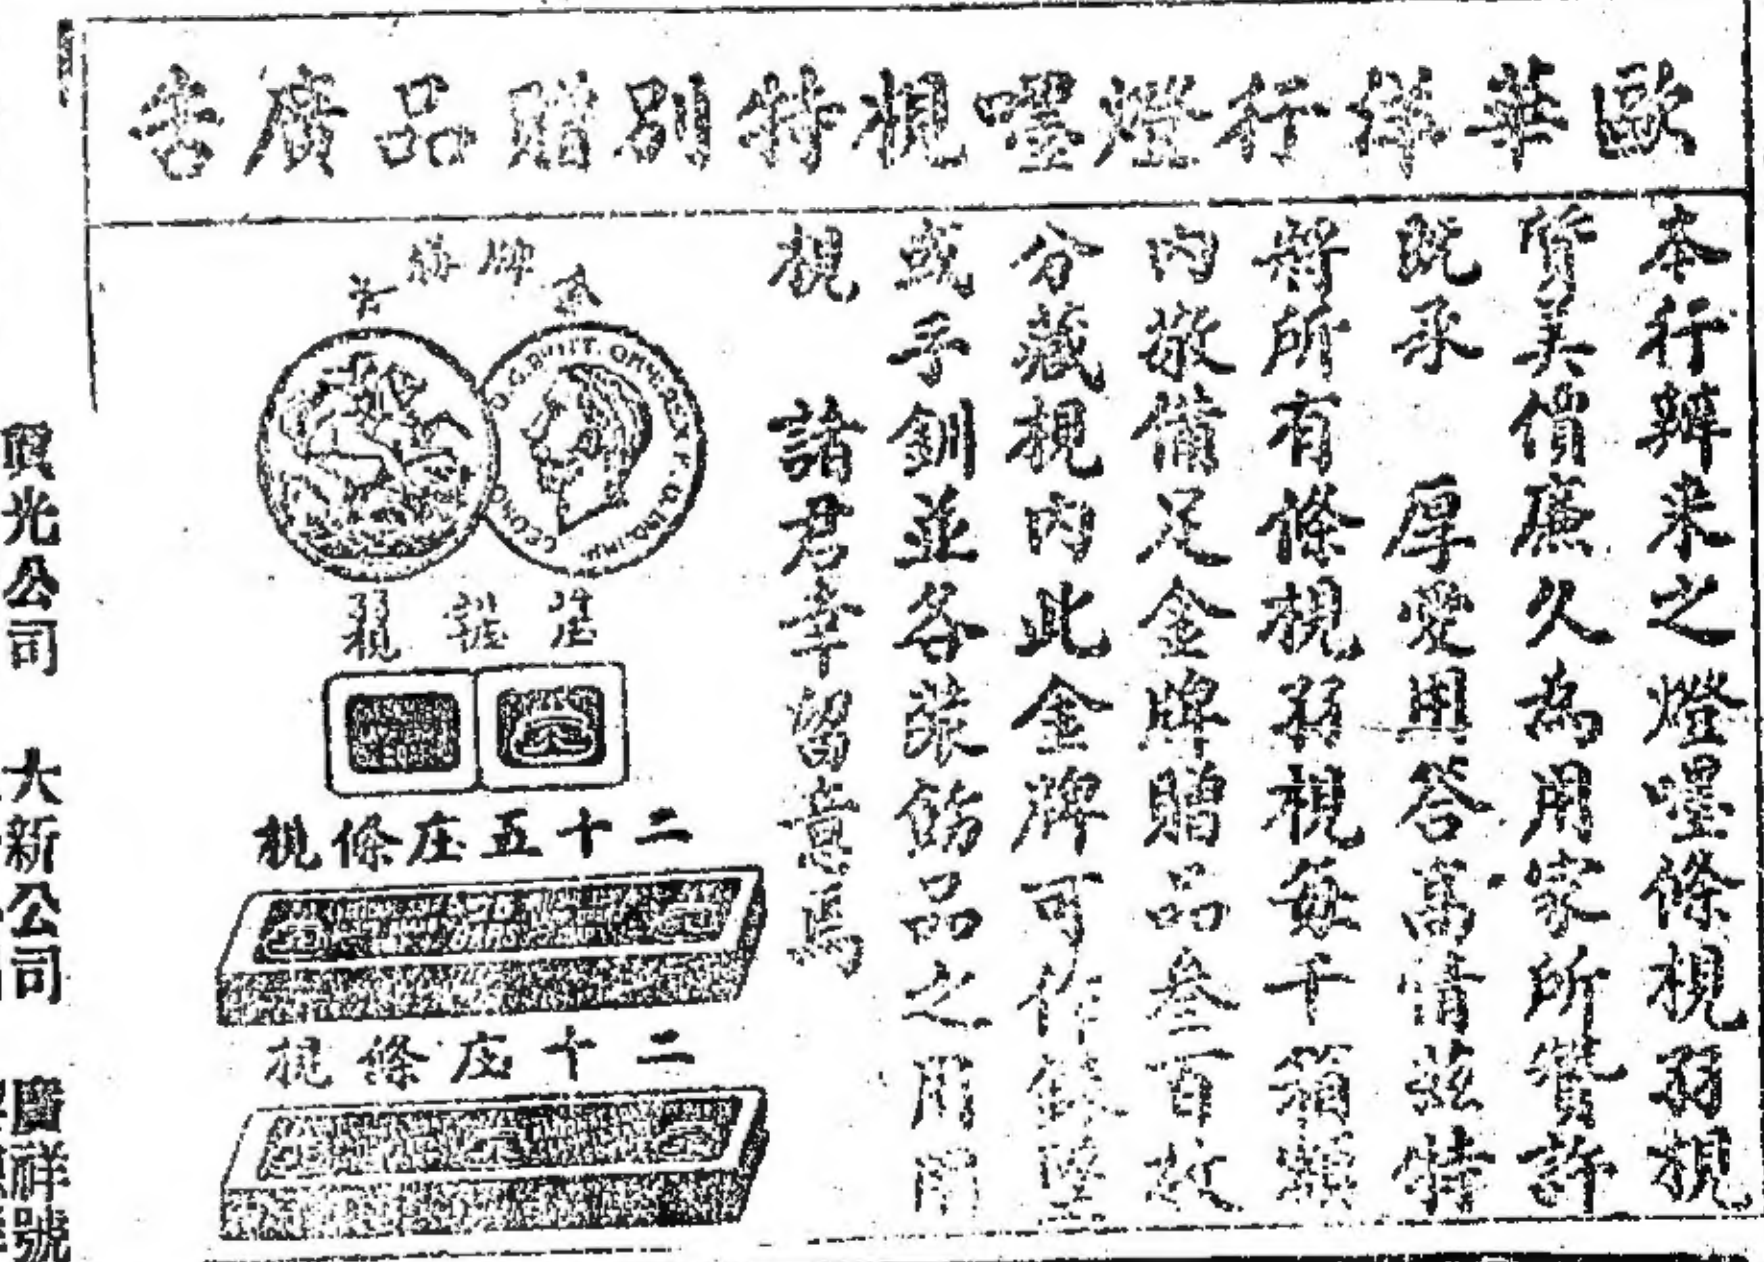 歐華洋行燈嘜梘特別贈品廣告
本行辦來之燈嘜條梘孖梘
質美價廉久為用家所贊許
既承 厚愛用答高情茲特
將所有條梘孖梘每千箱類
內敬備足金牌贈品叁百枚
分藏梘內此金牌可作鏈墜
或手釧並各裝飾品之用閣
梘 諸君幸留意焉
金牌
梘
二十五庄條梘
二十庄條梘
真光公司 大新公司 廣祥號